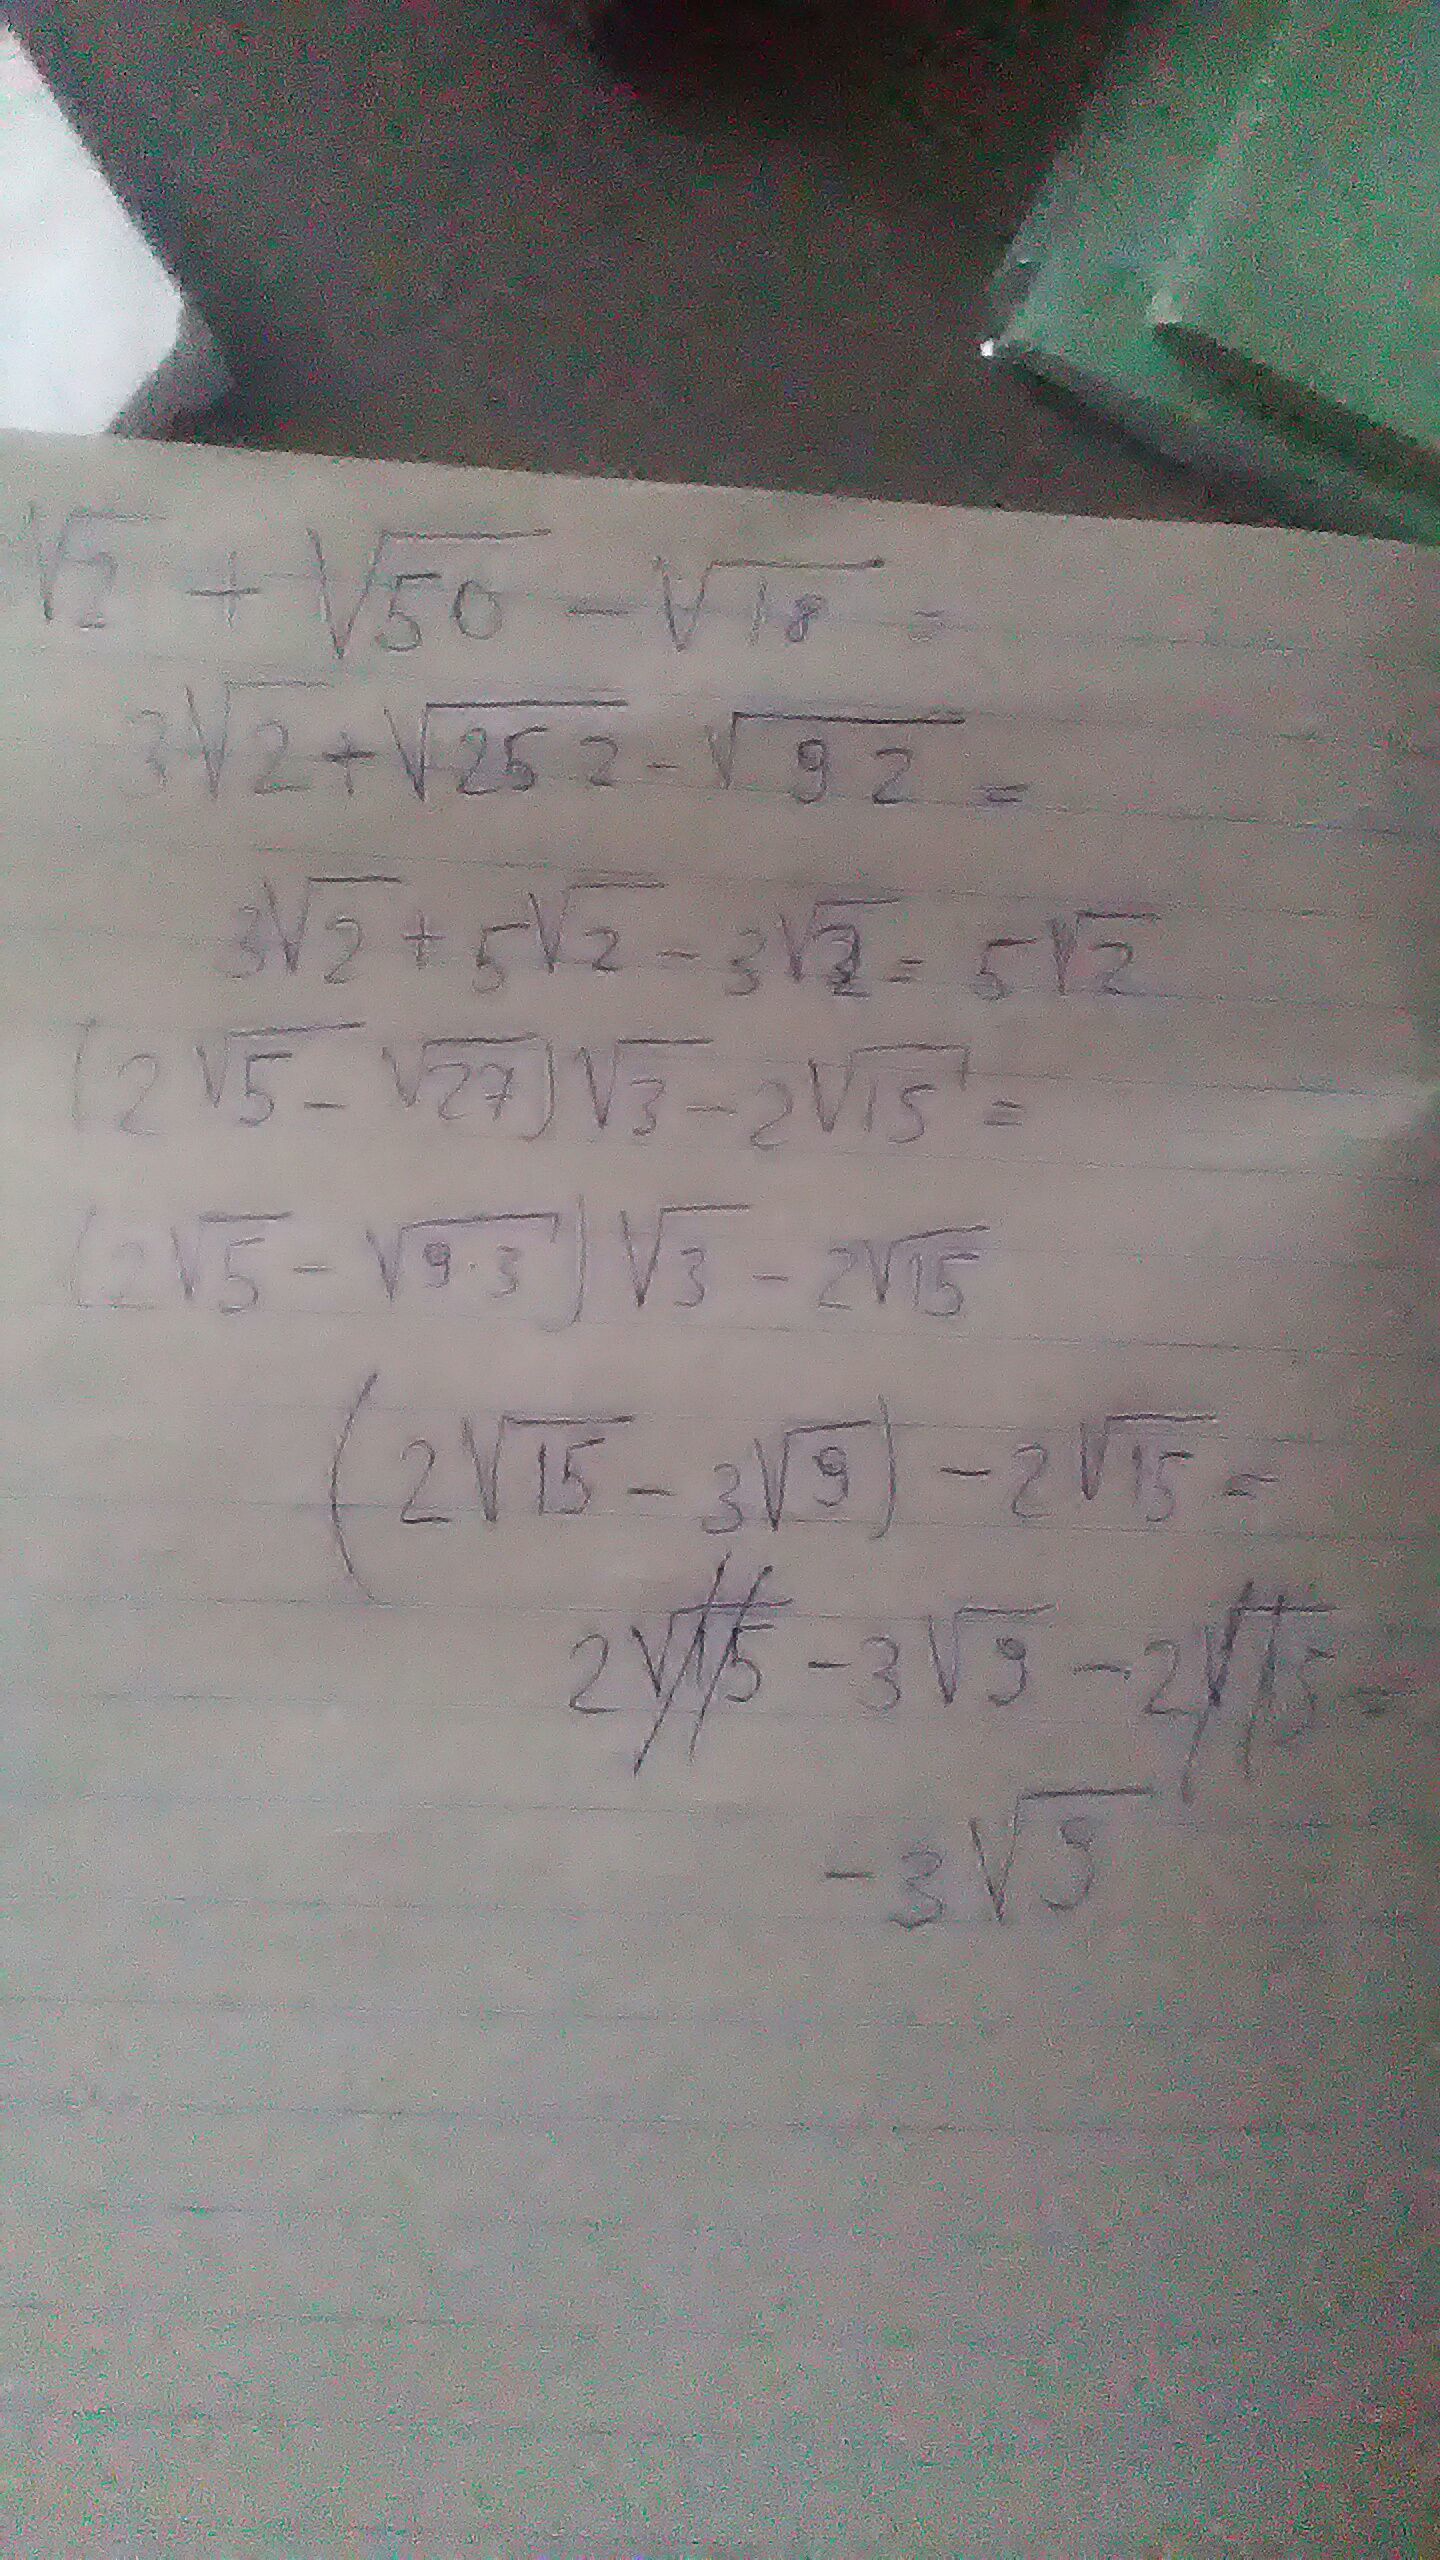 √2 + √50 - √18 =
3√2 + √25 2 - √9 2 =
3√2 + 5√2 - 3√2 = 5√2
(2√5 - √27)√3 - 2√15 =
(2√5 - √9·3)√3 - 2√15
(2√15 - 3√9) - 2√15 =
2√15 - 3√9 - 2√15 =
-3√9